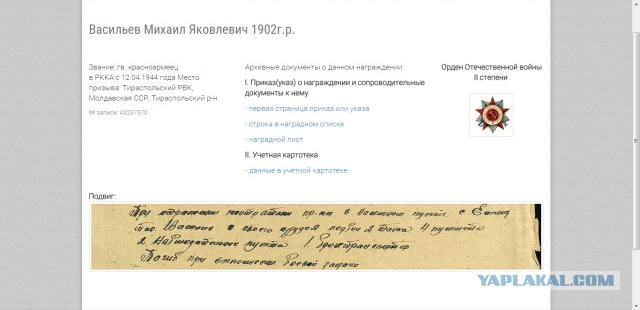 Васильев Михаил Яковлевич 1902г.р.
Звание: гв. красноармеец
в РККА с 12.04.1944 года Место
призыва: Тираспольский РВК,
Молдавская ССР, Тираспольский р-н
№ записи: 43237570
Архивные документы о данном награждении:
I. Приказ(указ) о награждении и сопроводительные
документы к нему
- первая страница приказ или указа
- строка в наградном списке
- наградной лист
II. Учетная картотека
- данные в учетной картотеке
Орден Отечественной войны
II степени
Подвиг:
При отражении контратаки пр-ка в населенном пункте с
тов. Васильев с своего орудия подбил 2 танка 4 пулемета
2 Наблюдательных пункта 1 бронетранспортер
Погиб при выполнении боевой задачи
YAPLAKAL.COM